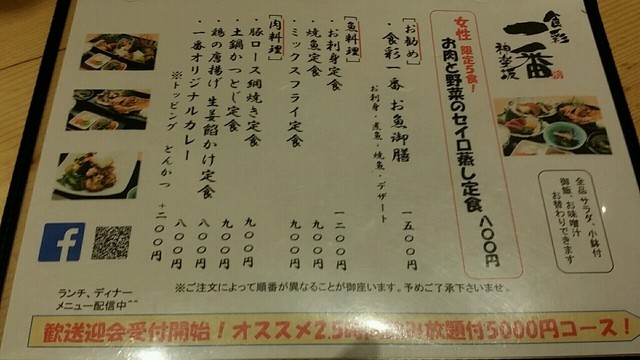 食彩
一番
神楽坂
女性 限定5食!
お肉と野菜のセイロ蒸し定食 八〇〇円
全品 サラダ、小鉢付
御飯・お味噌汁
お替わりできます
[お勧め]
・食彩一番 お魚御膳 一五〇〇円
お刺身・煮魚・焼魚・デザート
[魚料理]
・お刺身定食 一二〇〇円
・焼魚定食 九〇〇円
・ミックスフライ定食 九〇〇円
[肉料理]
・豚ロース網焼き定食 九〇〇円
・土鍋かつとじ定食 九〇〇円
・鶏の唐揚げ 生姜餡かけ定食 八〇〇円
・一番オリジナルカレー 八〇〇円
※トッピング とんかつ +二〇〇円
※ご注文によって順番が異なることが御座います。予めご了承下さいませ。
ランチ、ディナー
メニュー配信中^^
歓送迎会受付開始!オススメ2.5時間飲み放題付5000円コース!